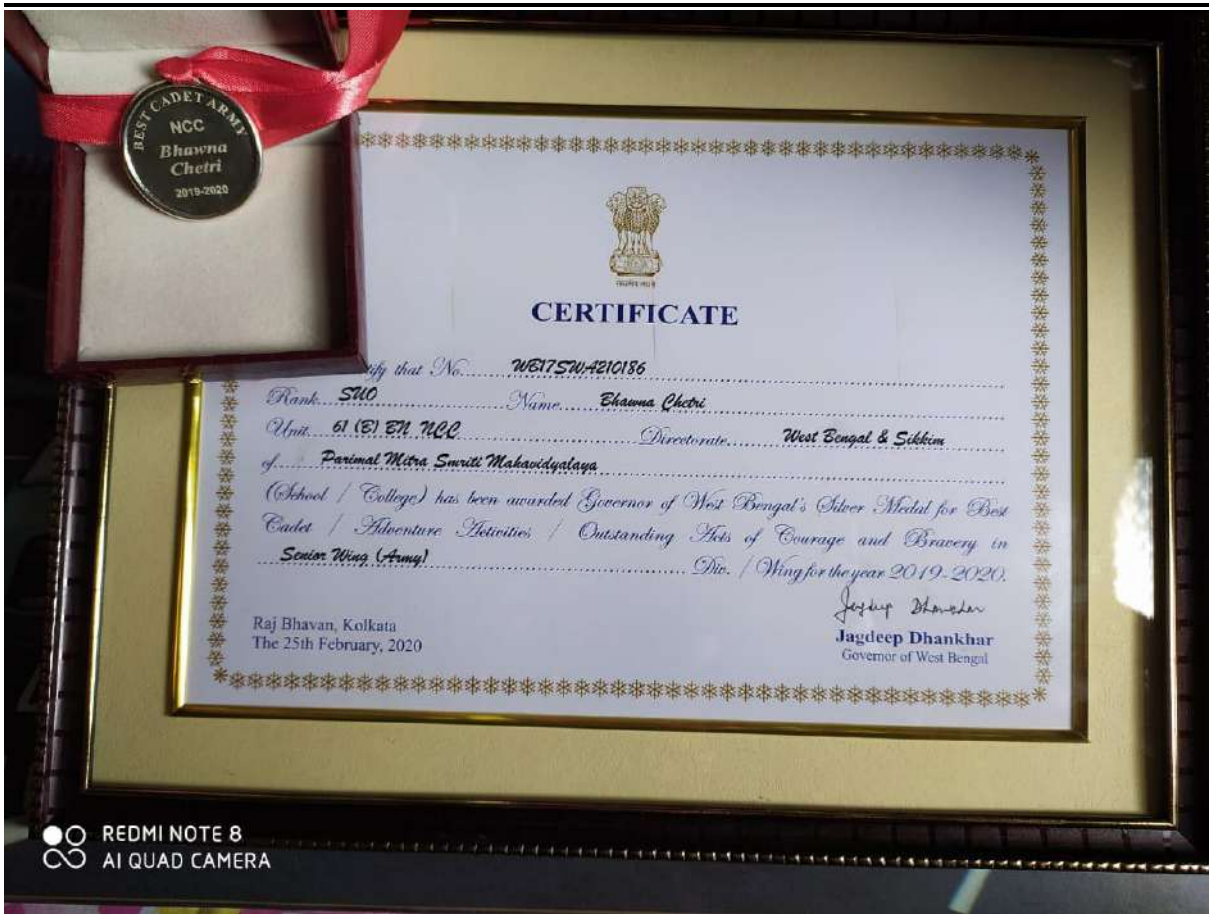 BEST CADET ARMY
NCC
Bhawna
Chetri
2019-2020
CERTIFICATE
tify that No. WB17SWA210186
Rank SUO Name Bhawna Chetri
Unit 61 (B) BN NCC Directorate West Bengal & Sikkim
of Parimal Mitra Smriti Mahavidyalaya
(School / College) has been awarded Governor of West Bengal's Silver Medal for Best
Cadet / Adventure Activities / Outstanding Acts of Courage and Bravery in
Senior Wing (Army) Div. / Wing for the year 2019-2020.
Jagdeep Dhankhar
Raj Bhavan, Kolkata
The 25th February, 2020
Jagdeep Dhankhar
Governor of West Bengal
REDMI NOTE 8
AI QUAD CAMERA